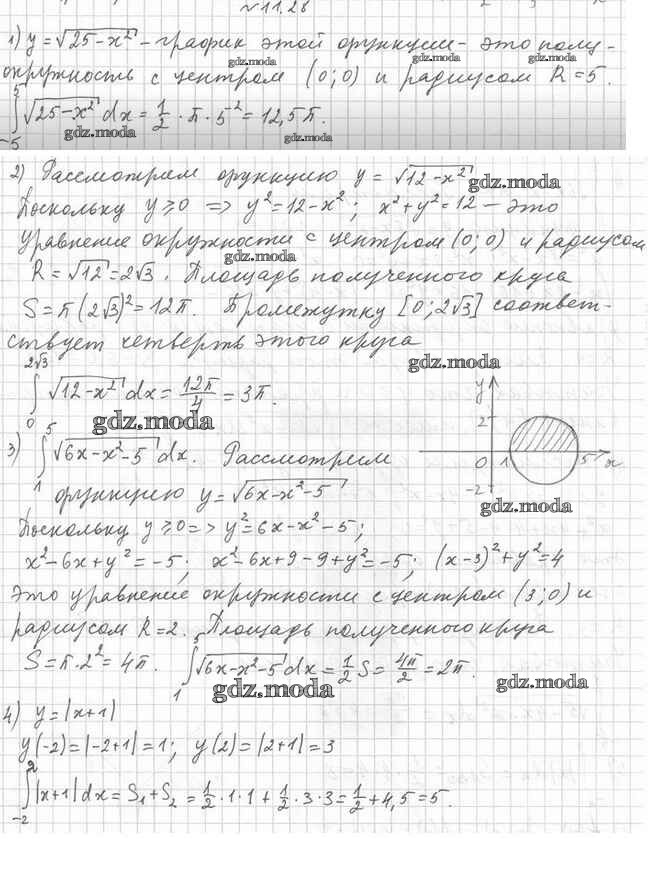 №11.28
1) y = √(25-x²) - график этой функции - это полу-
gdz.moda gdz.moda gdz.moda
окружность с центром (0;0) и радиусом R = 5.
∫₋₅⁵ √(25-x²) dx = 1/2 · π · 5² = 12,5π.
gdz.moda gdz.moda
2) Рассмотрим функцию y = √(12-x²)
gdz.moda
Поскольку y ≥ 0 => y² = 12-x²; x²+y² = 12 - это
уравнение окружности с центром (0;0) и радиусом
gdz.moda
R = √12 = 2√3. Площадь полученного круга
S = π(2√3)² = 12π. Промежутку [0; 2√3] соответ-
ствует четверть этого круга
gdz.moda
∫₀^(2√3) √(12-x²) dx = 12π/4 = 3π.
gdz.moda
y
2
0 1 5 x
-2
gdz.moda
3) ∫₁⁵ √(6x-x²-5) dx. Рассмотрим
функцию y = √(6x-x²-5)
Поскольку y ≥ 0 => y² = 6x-x²-5;
x²-6x+y² = -5; x²-6x+9-9+y² = -5; (x-3)²+y² = 4
Это уравнение окружности с центром (3;0) и
радиусом R = 2. Площадь полученного круга
S = π·2² = 4π. ∫₁⁵ √(6x-x²-5) dx = 1/2 S = 4π/2 = 2π.
gdz.moda gdz.moda
4) y = |x+1|
y(-2) = |-2+1| = 1; y(2) = |2+1| = 3
∫₋₂² |x+1| dx = S₁+S₂ = 1/2·1·1 + 1/2·3·3 = 1/2 + 4,5 = 5.